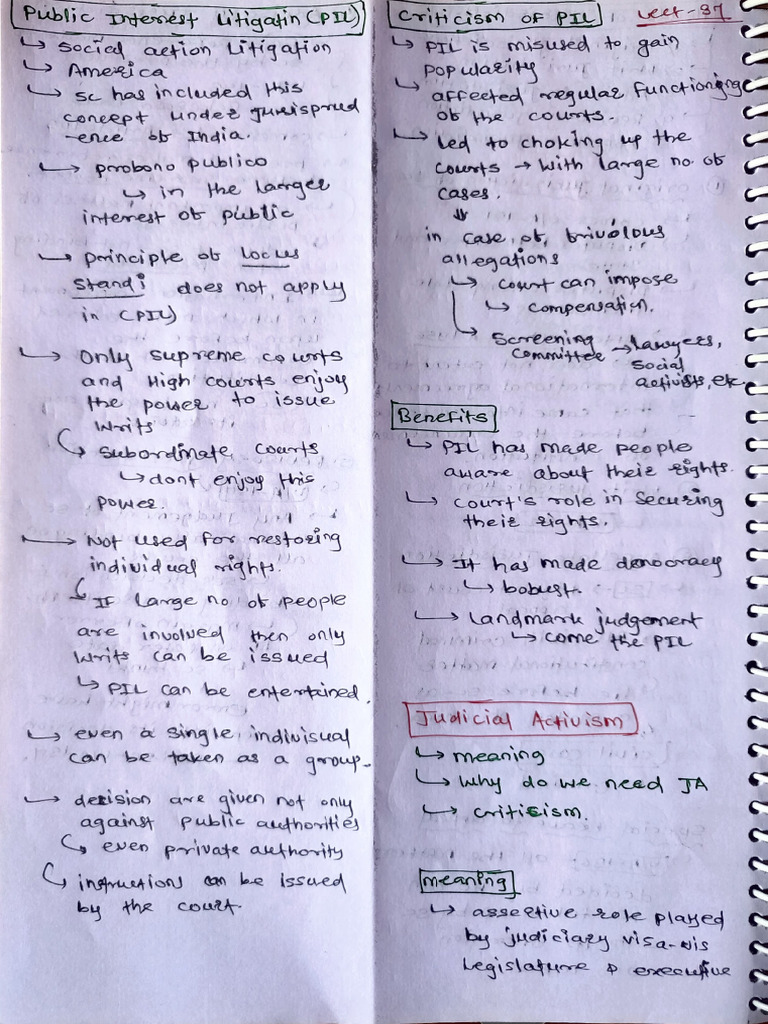 Public Interest Litigatin (PIL)
↳ Social action Litigation
↳ America
↳ SC has included this
concept under Jurisprud
-ence of India.
↳ probono publico
↳ in the larger
interest of public
↳ principle of locus
standi does not apply
in (PIL)
↳ Only supreme courts
and High courts enjoy
the power to issue
writs
↳ subordinate courts
↳ dont enjoy this
power.
↳ Not used for restoring
individual rights.
↳ If large no of people
are involved then only
writs can be issued
↳ PIL can be entertained.
↳ even a single indivisual
can be taken as a group.
↳ decision are given not only
against public authorities
↳ even private authority
↳ instructions can be issued
by the court.
Criticism of PIL Lect-37
↳ PIL is misused to gain
popularity
↳ affected regular functioning
of the courts.
↳ Led to choking up the
courts → with large no. of
cases.
⇓
in case of frivolous
allegations
↳ court can impose
↳ compensation.
↳ Screening
Committee → lawyers,
social
activists, etc.
Benefits
↳ PIL has made people
aware about their rights.
↳ court's role in securing
their rights.
↳ It has made democracy
↳ bobust.
↳ Landmark judgement
↳ come the PIL
Judicial Activism
↳ meaning
↳ Why do we need JA
↳ criticism.
meaning
↳ assertive role played
by judiciary visa-vis
Legislature & executive